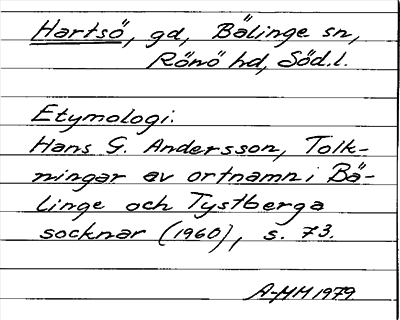 Hartsö, gd, Bälinge sn,
Rönö hd, Söd.l.
Etymologi:
Hans G. Andersson, Tolk-
ningar av ortnamn i Bä-
linge och Tystberga
socknar (1960), s. 73.
A-MM 1979.